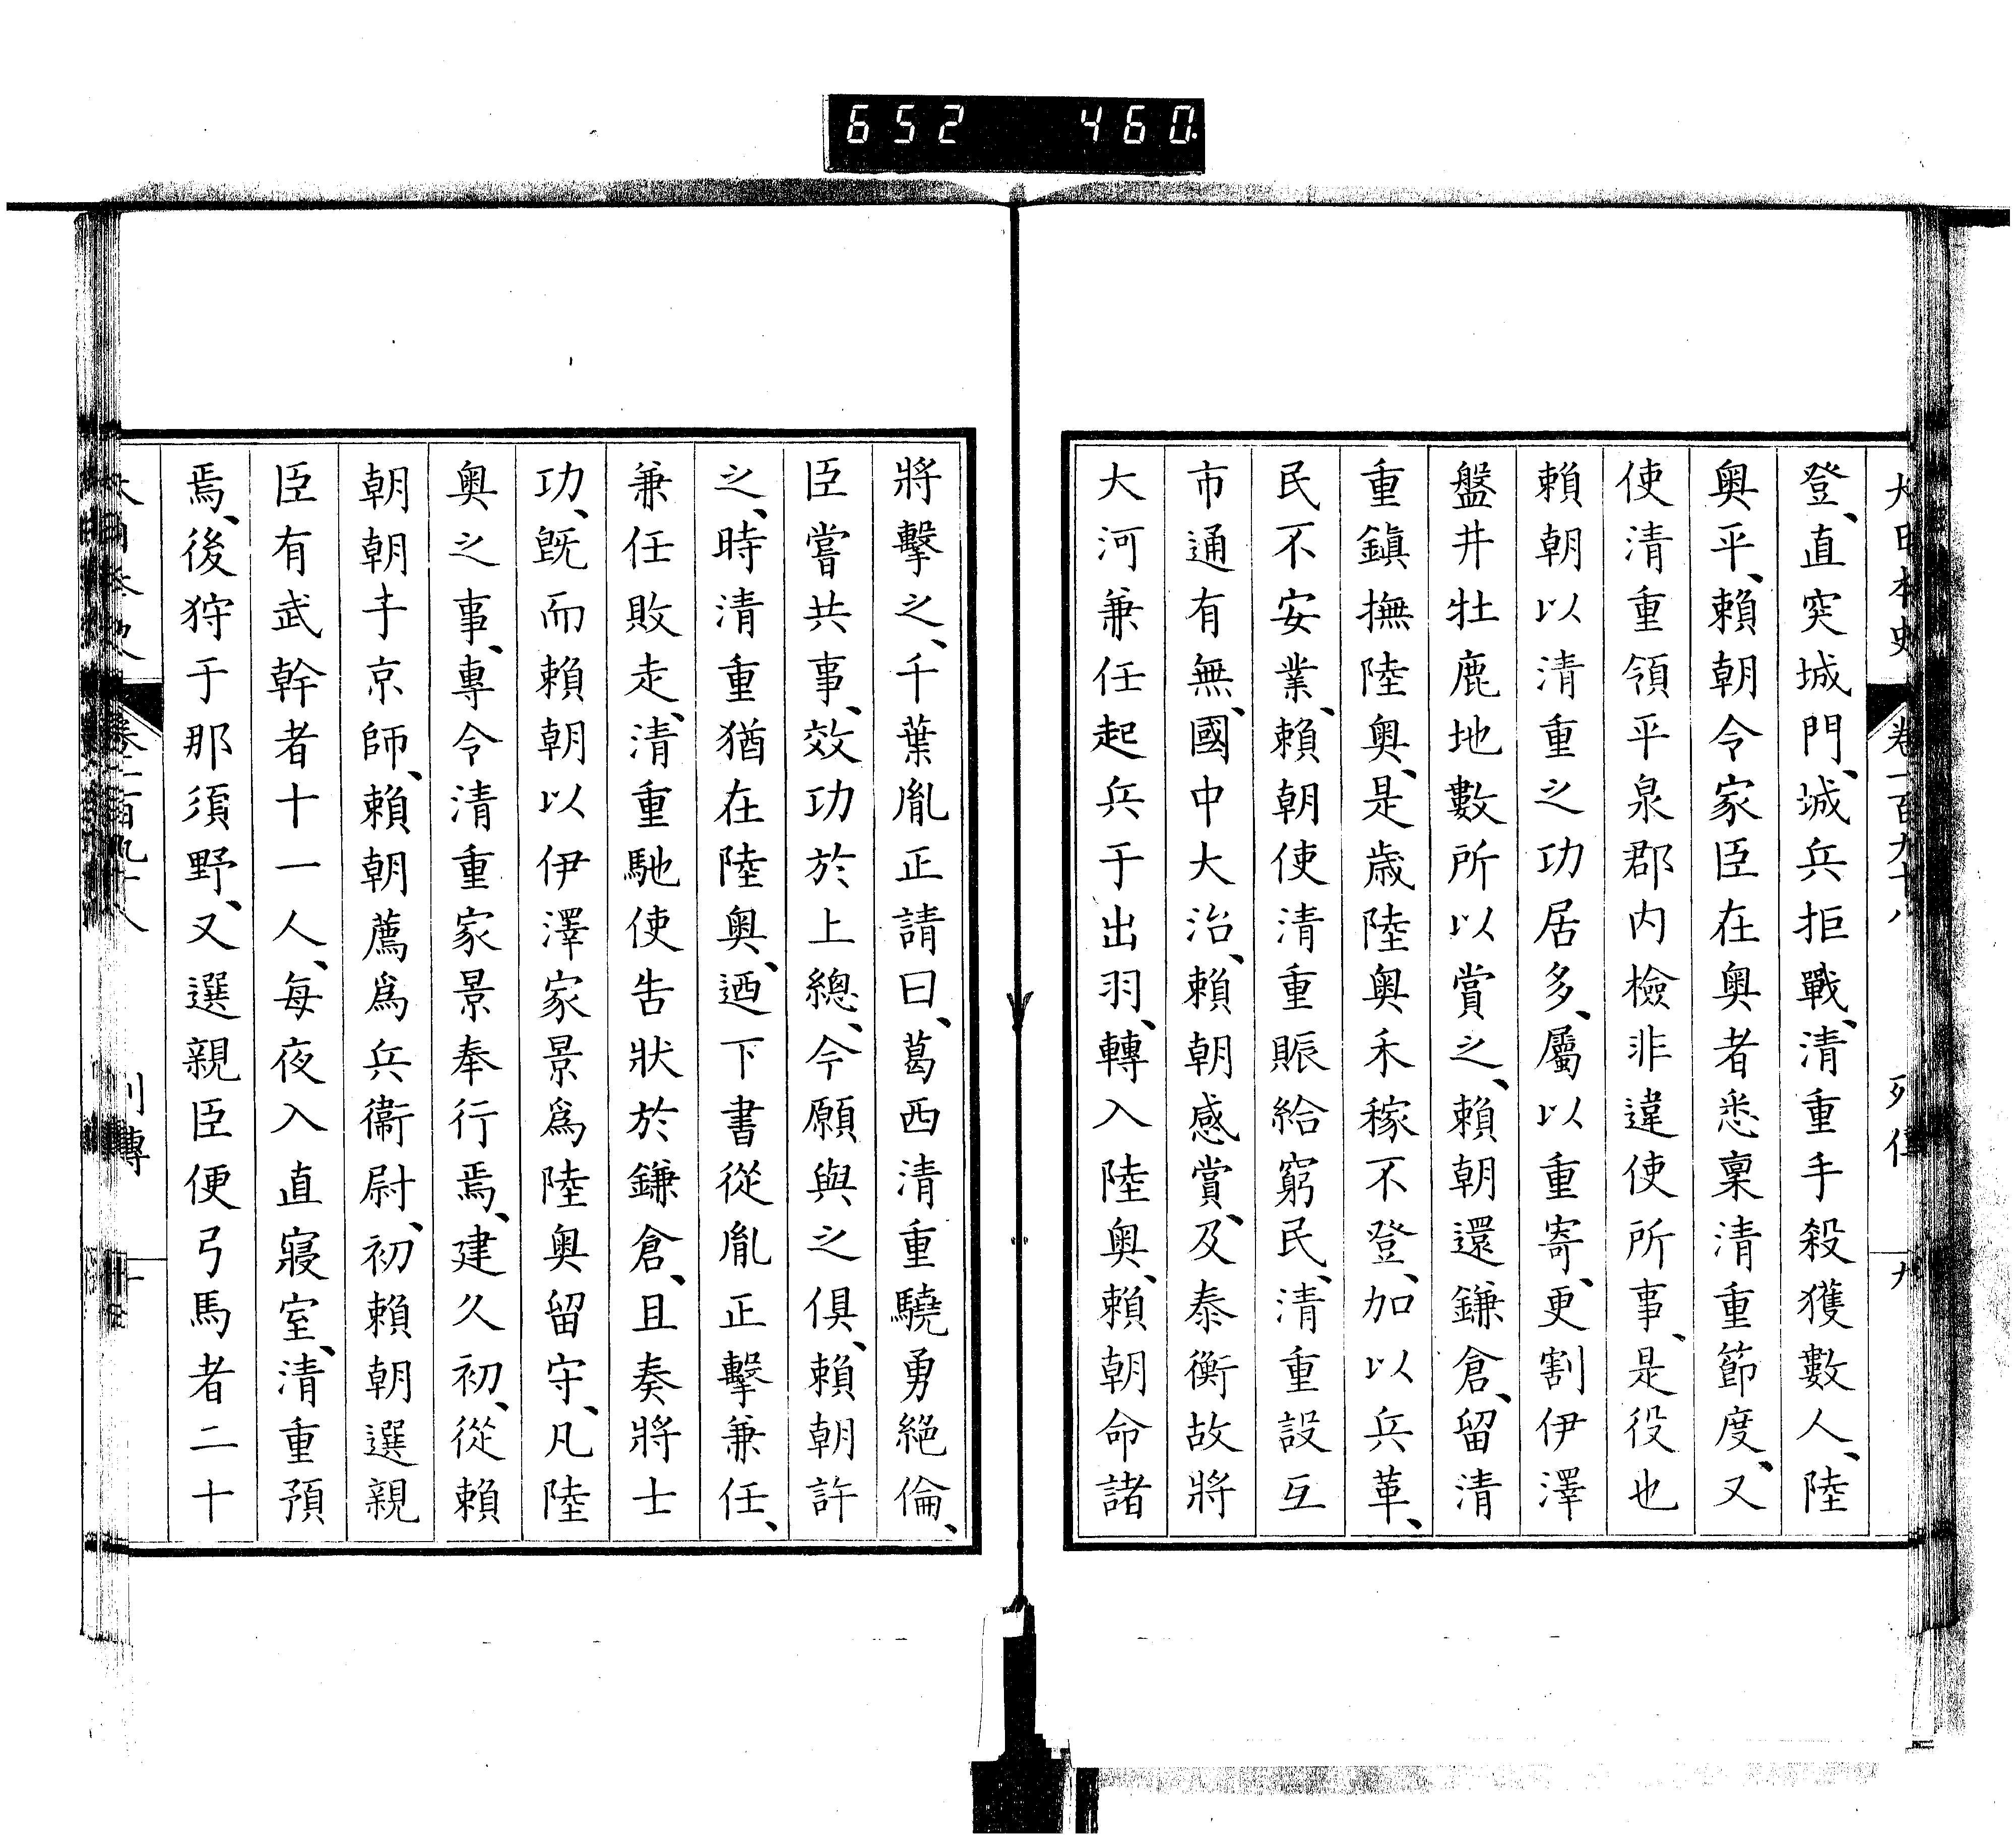 652 460
大日本史 卷一百九十八 列傳 九
登、直突城門、城兵拒戰、清重手殺獲數人、陸
奧平、賴朝令家臣在奧者悉稟清重節度、又
使清重領平泉郡内檢非違使所事、是役也
賴朝以清重之功居多、屬以重寄、更割伊澤
盤井牡鹿地數所以賞之、賴朝還鎌倉、留清
重鎭撫陸奧、是歳陸奧禾稼不登、加以兵革、
民不安業、賴朝使清重賑給窮民、清重設互
市通有無、國中大治、賴朝感賞、及泰衡故將
大河兼任起兵于出羽、轉入陸奧、賴朝命諸
將擊之、千葉胤正請曰、葛西清重驍勇絕倫、
臣嘗共事、效功於上總、今願與之俱、賴朝許
之、時清重猶在陸奧、迺下書從胤正擊兼任、
兼任敗走、清重馳使告狀於鎌倉、且奏將士
功、既而賴朝以伊澤家景爲陸奧留守、凡陸
奧之事、專令清重家景奉行焉、建久初、從賴
朝朝于京師、賴朝薦爲兵衞尉、初賴朝選親
臣有武幹者十一人、每夜入直寢室、清重預
焉、後狩于那須野、又選親臣便弓馬者二十
大日本史 卷一百九十八 列傳 十